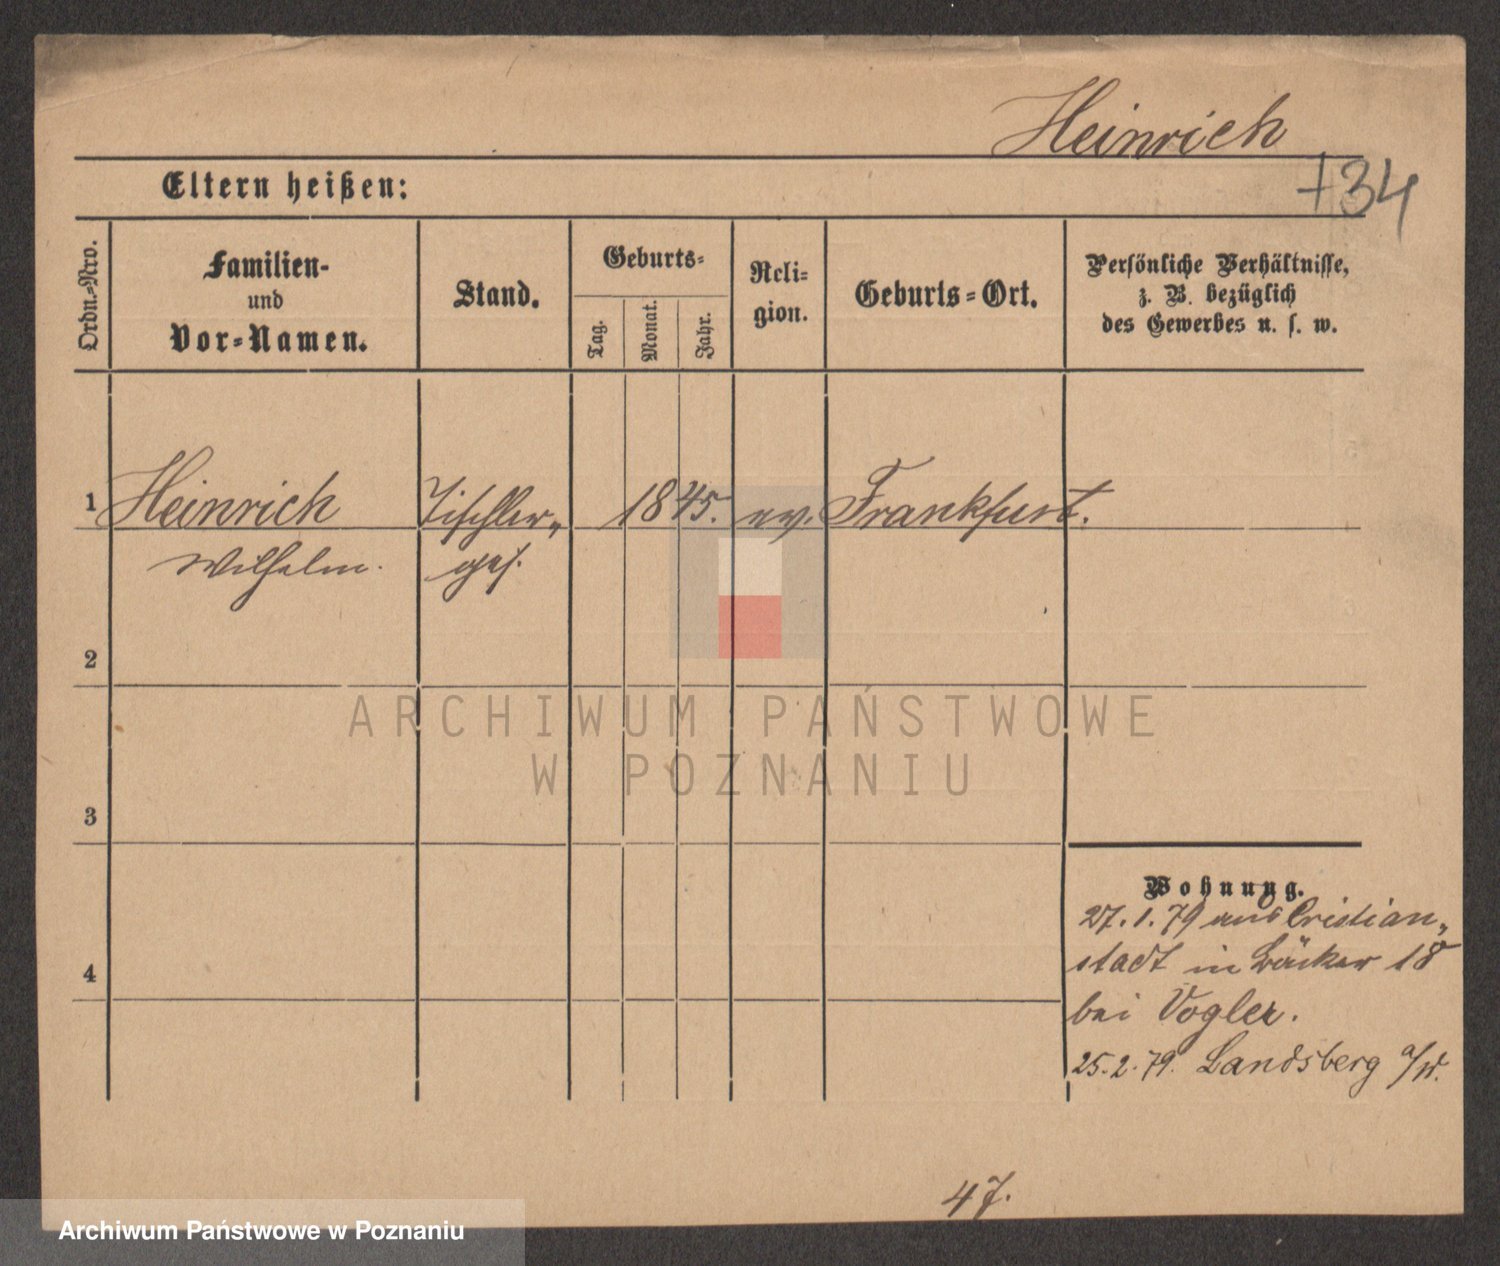 Heinrich
734
Eltern heißen:
Ordn.-Nro.
Familien-
und
Vor-Namen.
Stand.
Geburts-
Tag.
Monat.
Jahr.
Reli-
gion.
Geburts-Ort.
Persönliche Verhältnisse,
z. B. bezüglich
des Gewerbes u. s. w.
1 Heinrich Tischler- 1845. ev. Frankfurt.
Wilhelm. ges.
2
ARCHIWUM PAŃSTWOWE
W POZNANIU
3
Wohnung.
27.1.79 aus Cristian-
stadt in Bäcker 18
4
bei Vogler.
25.2.79. Landsberg a/W.
47.
Archiwum Państwowe w Poznaniu